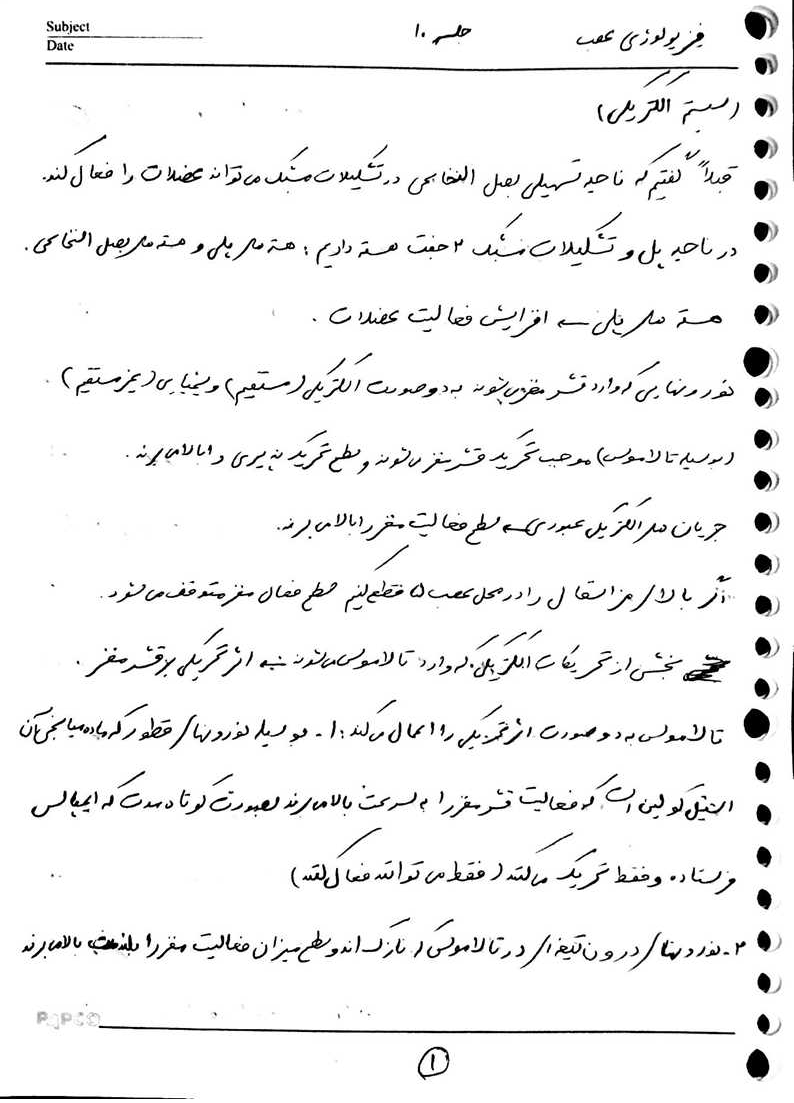 Subject
Date
فیزیولوژی عصب
جلسه ۱۰
(سیستم الکتریکی)
قبلاً گفتیم که ناحیه تسهیلی بصل النخاعی در تشکیلات مشبک می تواند عضلات را فعال کند.
در ناحیه پل و تشکیلات مشبک ۲ جفت هسته داریم : هسته های پلی و هسته های بصل النخاعی .
هسته های پلی ← افزایش فعالیت عضلات .
نورونهایی که وارد قشر مغز می شوند به دو صورت الکتریکی (مستقیم) و شیمیایی (غیرمستقیم)
(بوسیله تالاموس) موجب تحریک قشر مغز می شوند و سطح تحریک پذیری را بالا می برند .
جریان های الکتریکی عبوری ← سطح فعالیت مغز را بالا می برند.
اگر بالای مرز اتصال را در محل عصب ۵ قطع کنیم سطح فعال مغز متوقف می شود .
بخشی از تحریکات الکتریکی که وارد تالاموس می شوند ← اثر تحریکی بر قشر مغز .
تالاموس به دو صورت اثر تحریکی را اعمال می کند : ۱- بوسیله نورونهای قطور که ماده میانجی آن
استیل کولین است که فعالیت قشر مغز را به سرعت بالا می برند بصورت کوتاه مدت که ایمپالس
فرستاده و فقط تحریک می کنند (فقط می توانند فعال کنند)
۲- نورونهای درون تیغه ای در تالاموس که نازک اند و سطح میزان فعالیت مغز را بالا می برند
PAPCO
۱